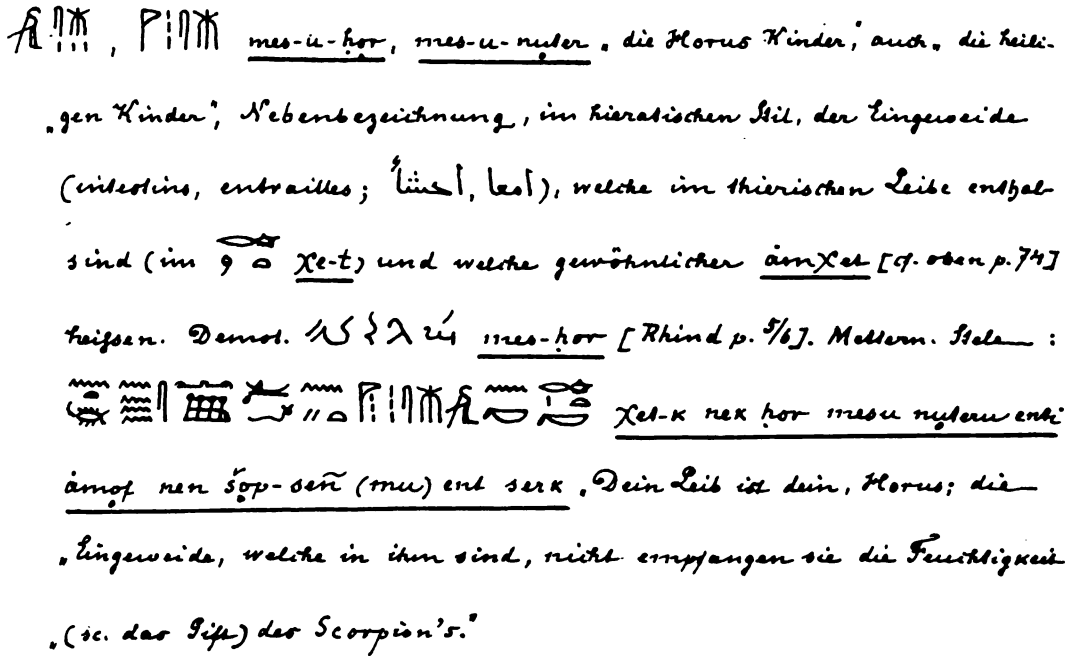 , mes-u-ḥor, mes-u-nuter „die Horus Kinder“, auch „die heili-
„gen Kinder“, Nebenbezeichnung, im hieratischen Stil, der Eingeweide
(intestins, entrailles; أحشاء, امعا), welche im thierischen Leibe enthal-
sind (im χe-t) und welche gewöhnlicher ȧmχet [cf. oben p. 74]
heifsen. Demot. mes-ḥor [Rhind p. 5/6]. Mettern. Stele :
χet-k nek ḥor mesu nuteru enti
ȧmof nen šop-sen (mu) ent serk „Dein Leib ist dein, Horus; die
„Eingeweide, welche in ihm sind, nicht empfangen sie die Feuchtigkeit
„(sc. das Gift) des Scorpion's.“